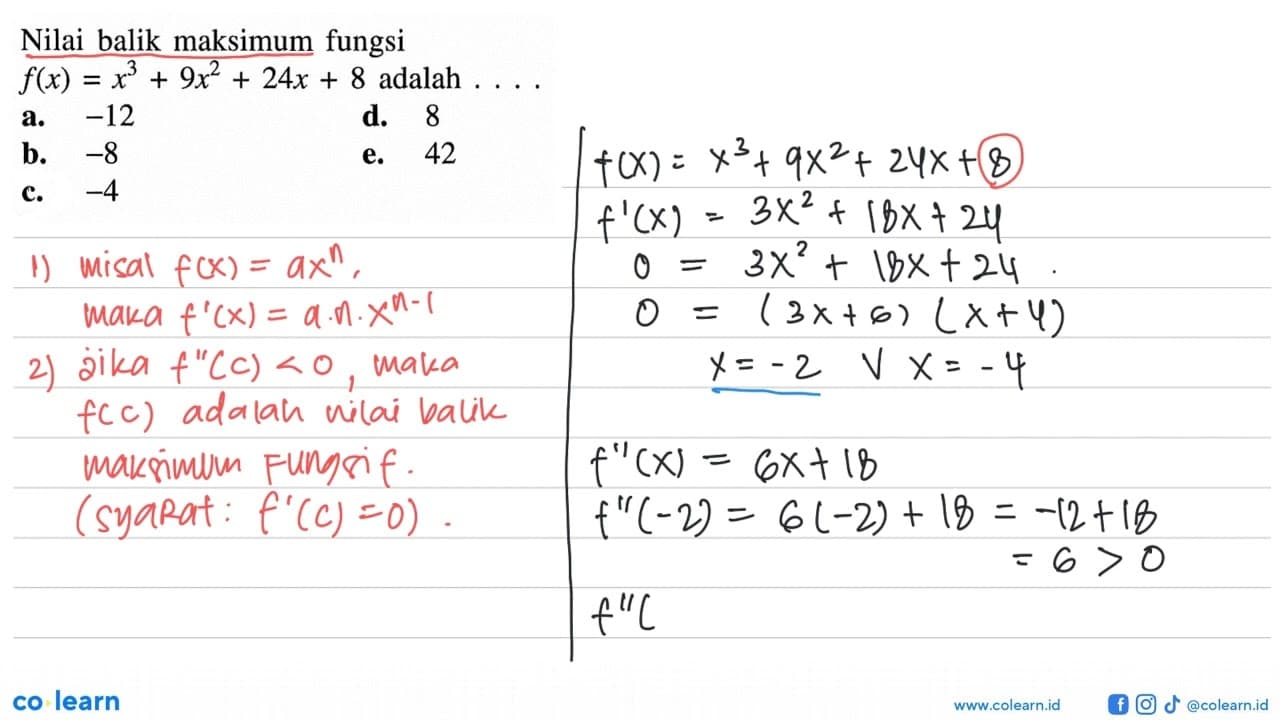 Nilai balik maksimum fungsi
f(x) = x³ + 9x² + 24x + 8 adalah . . . .
a. –12
d. 8
b. –8
e. 42
c. –4
1) misal f(x) = axⁿ,
maka f'(x) = a.n.xⁿ⁻¹
2) jika f"(c) < 0, maka
f(c) adalah nilai balik
maksimum Fungsi f.
(syaRat: f'(c) = 0).
f(x) = x³ + 9x² + 24x + 8
f'(x) = 3x² + 18x + 24
0 = 3x² + 18x + 24.
0 = (3x + 6) (x + 4)
x = -2 V x = -4
f"(x) = 6x + 18
f"(-2) = 6(-2) + 18 = -12 + 18
= 6 > 0
f"(
co·learn
www.colearn.id
@colearn.id